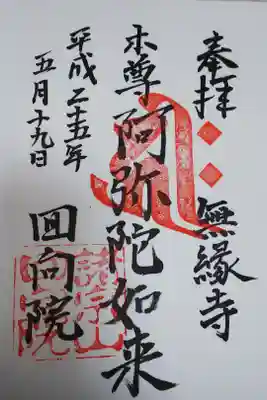 奉拝　無縁寺
本尊阿弥陀如来
平成二十五年
五月十九日
回向院
諸宗山